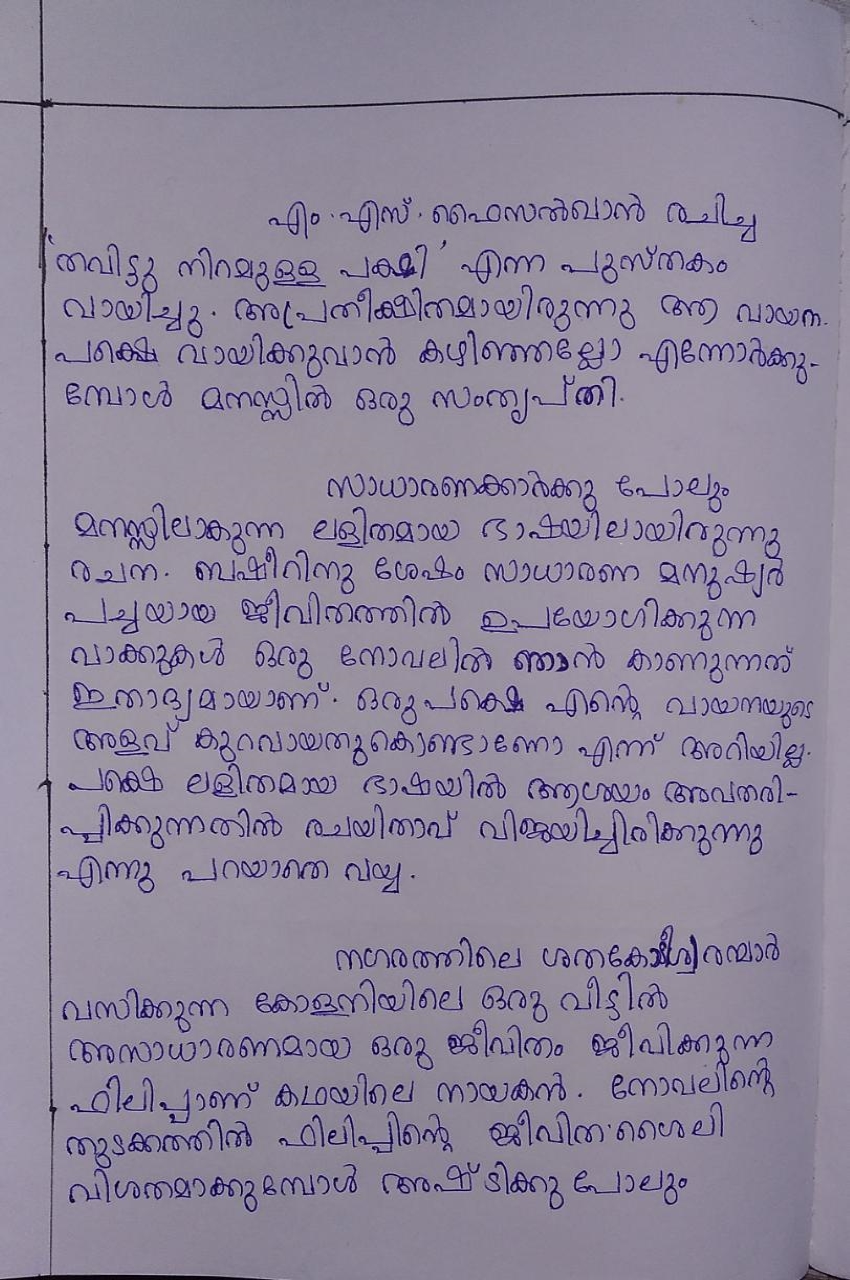 എം.എസ്. ഫൈസൽഖാൻ രചിച്ച
'തവിട്ടു നിറമുള്ള പക്ഷി' എന്ന പുസ്തകം
വായിച്ചു. അപ്രതീക്ഷിതമായിരുന്നു ആ വായന.
പക്ഷെ വായിക്കുവാൻ കഴിഞ്ഞല്ലോ എന്നോർക്കു-
മ്പോൾ മനസ്സിൽ ഒരു സംതൃപ്തി.
സാധാരണക്കാർക്കു പോലും
മനസ്സിലാകുന്ന ലളിതമായ ഭാഷയിലായിരുന്നു
രചന. ബഷീറിനു ശേഷം സാധാരണ മനുഷ്യർ
പച്ചയായ ജീവിതത്തിൽ ഉപയോഗിക്കുന്ന
വാക്കുകൾ ഒരു നോവലിൽ ഞാൻ കാണുന്നത്
ഇതാദ്യമായാണ്. ഒരുപക്ഷെ എന്റെ വായനയുടെ
അളവ് കുറവായതുകൊണ്ടാണോ എന്ന് അറിയില്ല.
പക്ഷെ ലളിതമായ ഭാഷയിൽ ആശയം അവതരി-
പ്പിക്കുന്നതിൽ രചയിതാവ് വിജയിച്ചിരിക്കുന്നു
എന്നു പറയാതെ വയ്യ.
നഗരത്തിലെ ശതകോടീശ്വരന്മാർ
വസിക്കുന്ന കോളനിയിലെ ഒരു വീട്ടിൽ
അസാധാരണമായ ഒരു ജീവിതം ജീവിക്കുന്ന
ഫിലിപ്പാണ് കഥയിലെ നായകൻ. നോവലിന്റെ
തുടക്കത്തിൽ ഫിലിപ്പിന്റെ ജീവിത ശൈലി
വിശതമാക്കുമ്പോൾ അഷ്ടിക്കു പോലും